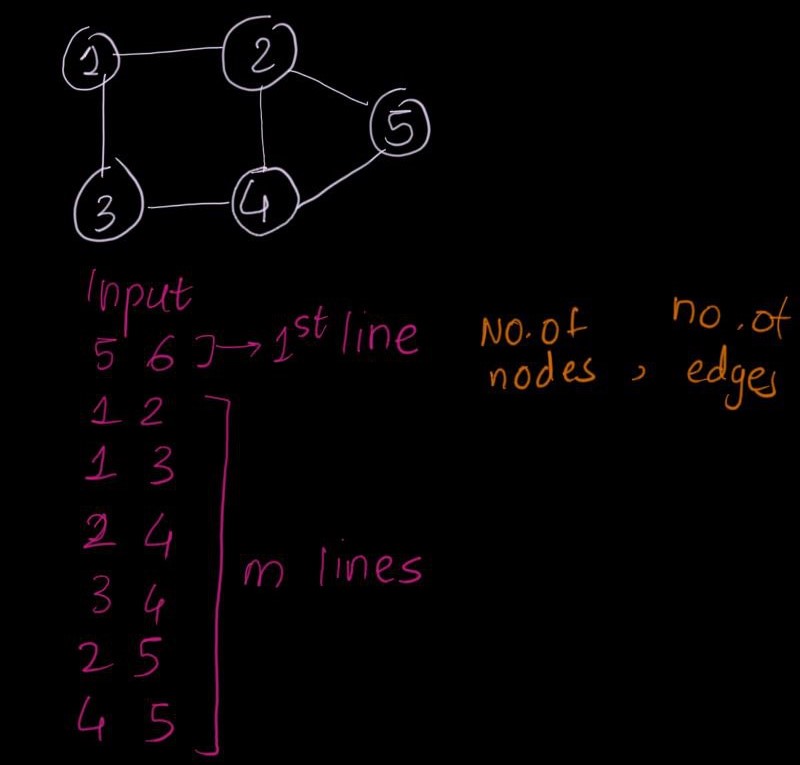 1 2
5
3 4
Input
5 6 ] → 1st line No. of nodes , no. of edges
1 2
1 3
2 4
3 4
2 5
4 5
m lines